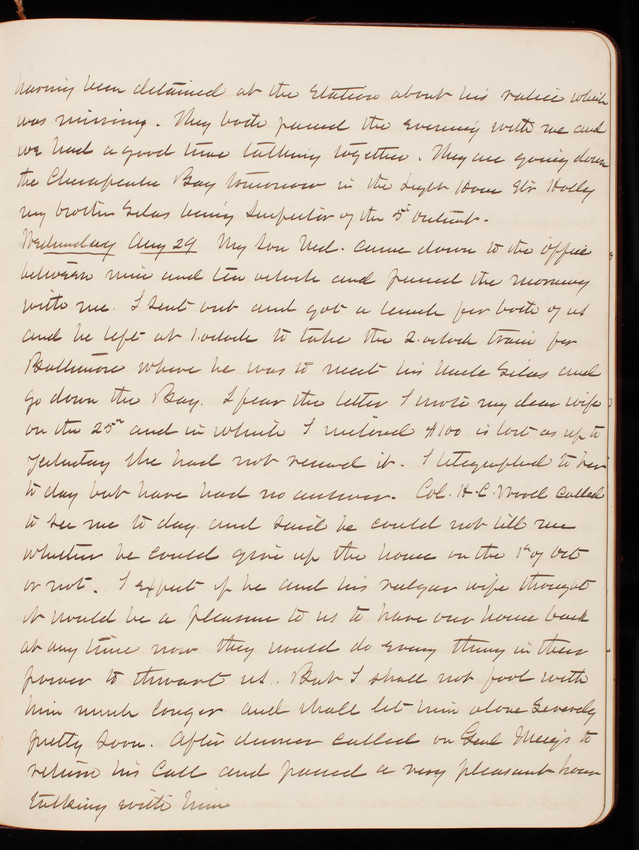 having been detained at the Station about his valise which
was missing. They both passed the evening with me and
we had a good time talking together. They are going down
the Chesapeake Bay tomorrow in the Light House Str Holly
my brother Silas being Inspector of the 5th District.
Wednesday Aug 29 My Son Ned. came down to the office
between nine and ten oclock and passed the morning
with me. I sent out and got a lunch for both of us
and he left at 1.oclock to take the 2.oclock train for
Baltimore where he was to meet his Uncle Silas and
go down the Bay. I fear the letter I wrote my dear wife
on the 25th and in which I inclosed $100 is lost as up to
yesterday she had not received it. I telegraphed to her
to day but have had no answer. Col. H-C. Wood called
to see me to day and said he could not tell me
whether he could give up the house on the 1st of Oct
or not. I expect if he and his vulgar wife thought
it would be a pleasure to us to have our house back
at any time now they would do every thing in their
power to thwart us. But I shall not fool with
him much longer and shall let him alone severely
pretty soon. After dinner called on Genl Meigs to
return his call and passed a very pleasant hour
talking with him